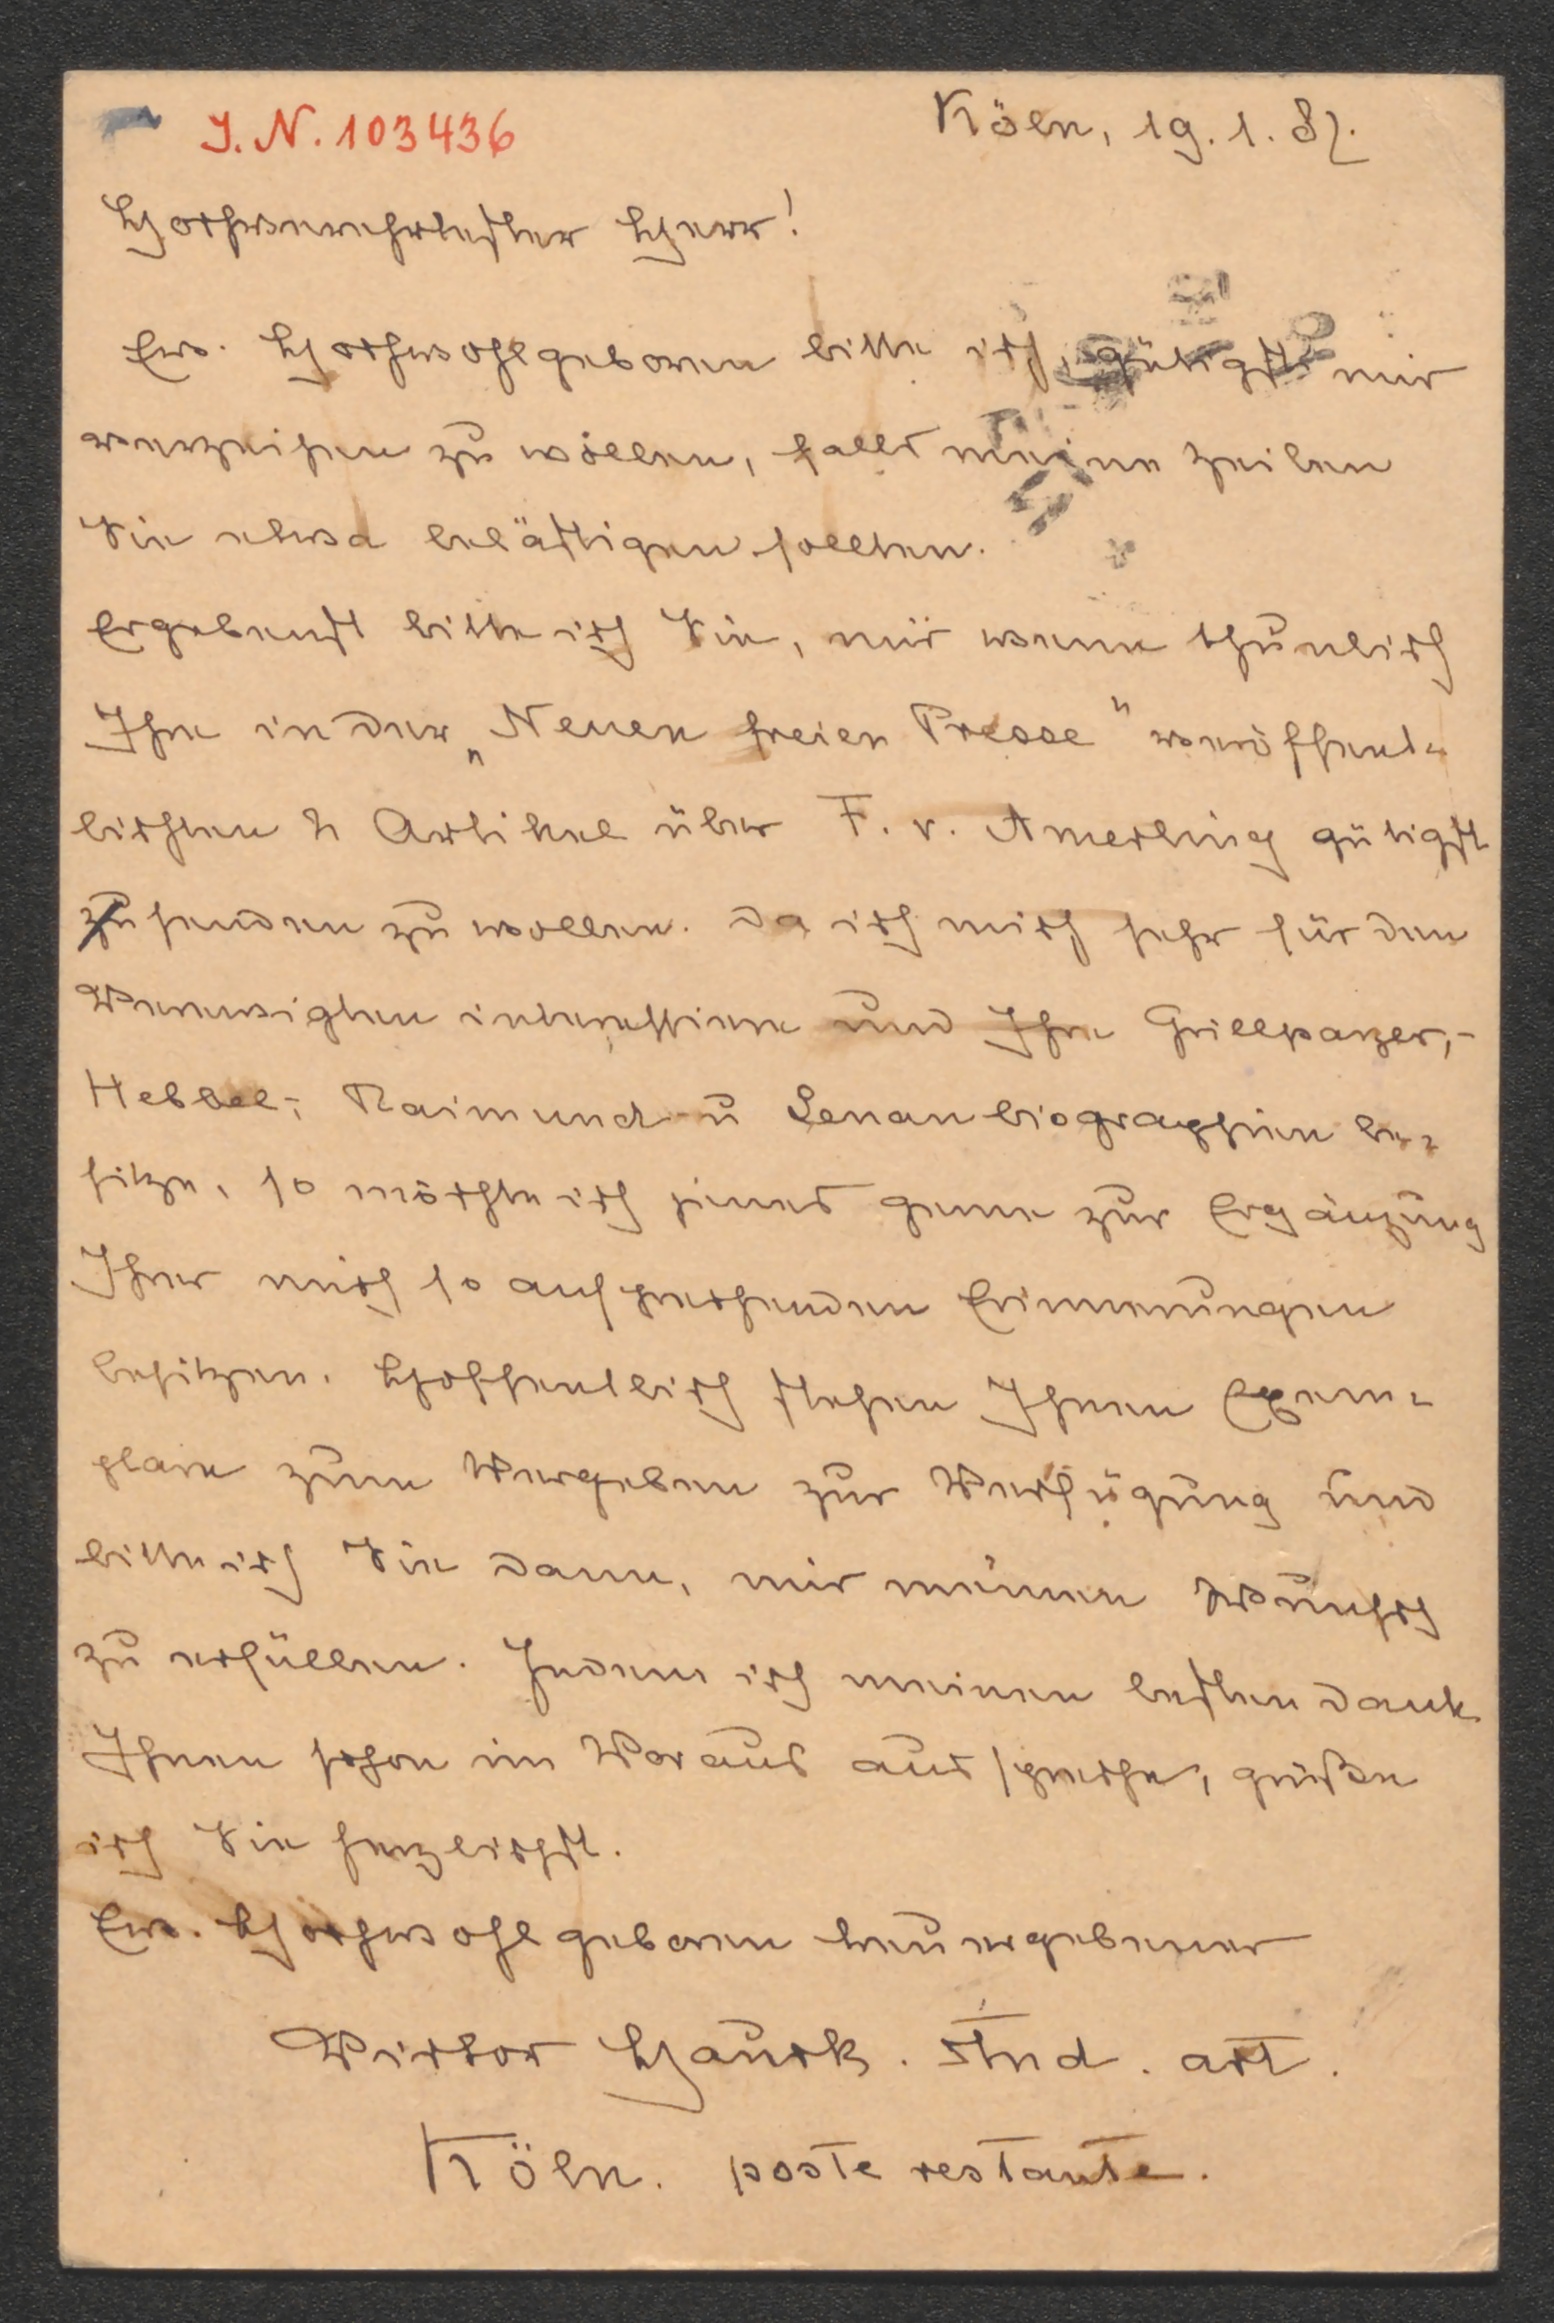 J. N. 103436
Köln, 19. 1. 87.
Hochverehrtester Herr!
Ew. Hochwohlgeboren bitte ich, gütigst mir
verzeihen zu wollen, falls meine Zeilen
Sie etwa belästigen sollten.
Ergebenst bitte ich Sie, mir wenn thunlich
Ihre in der „Neuen freien Presse" veröffent-
lichten 2 Artikel über F. v. Amerling gütigst
zusenden zu wollen. Da ich mich sehr für den
Verewigten interessiere und Ihre Grillparzer,-
Hebbel-, Raimund- u Lenaubiographien be-
sitze, so möchte ich jenes gerne zur Ergänzung
Ihrer mich so ansprechenden Erinnerungen
besitzen. Hoffentlich stehen Ihnen Exem-
plare zum Vergeben zur Verfügung und
bitte ich Sie dann, mir meinen Wunsch
zu erfüllen. Indem ich meinen besten Dank
Ihnen schon im Voraus ausspreche, grüße
ich Sie herzlichst.
Ew. Hochwohlgeboren treuergebener
Victor Hauck. stud. art.
Köln. poste restante.